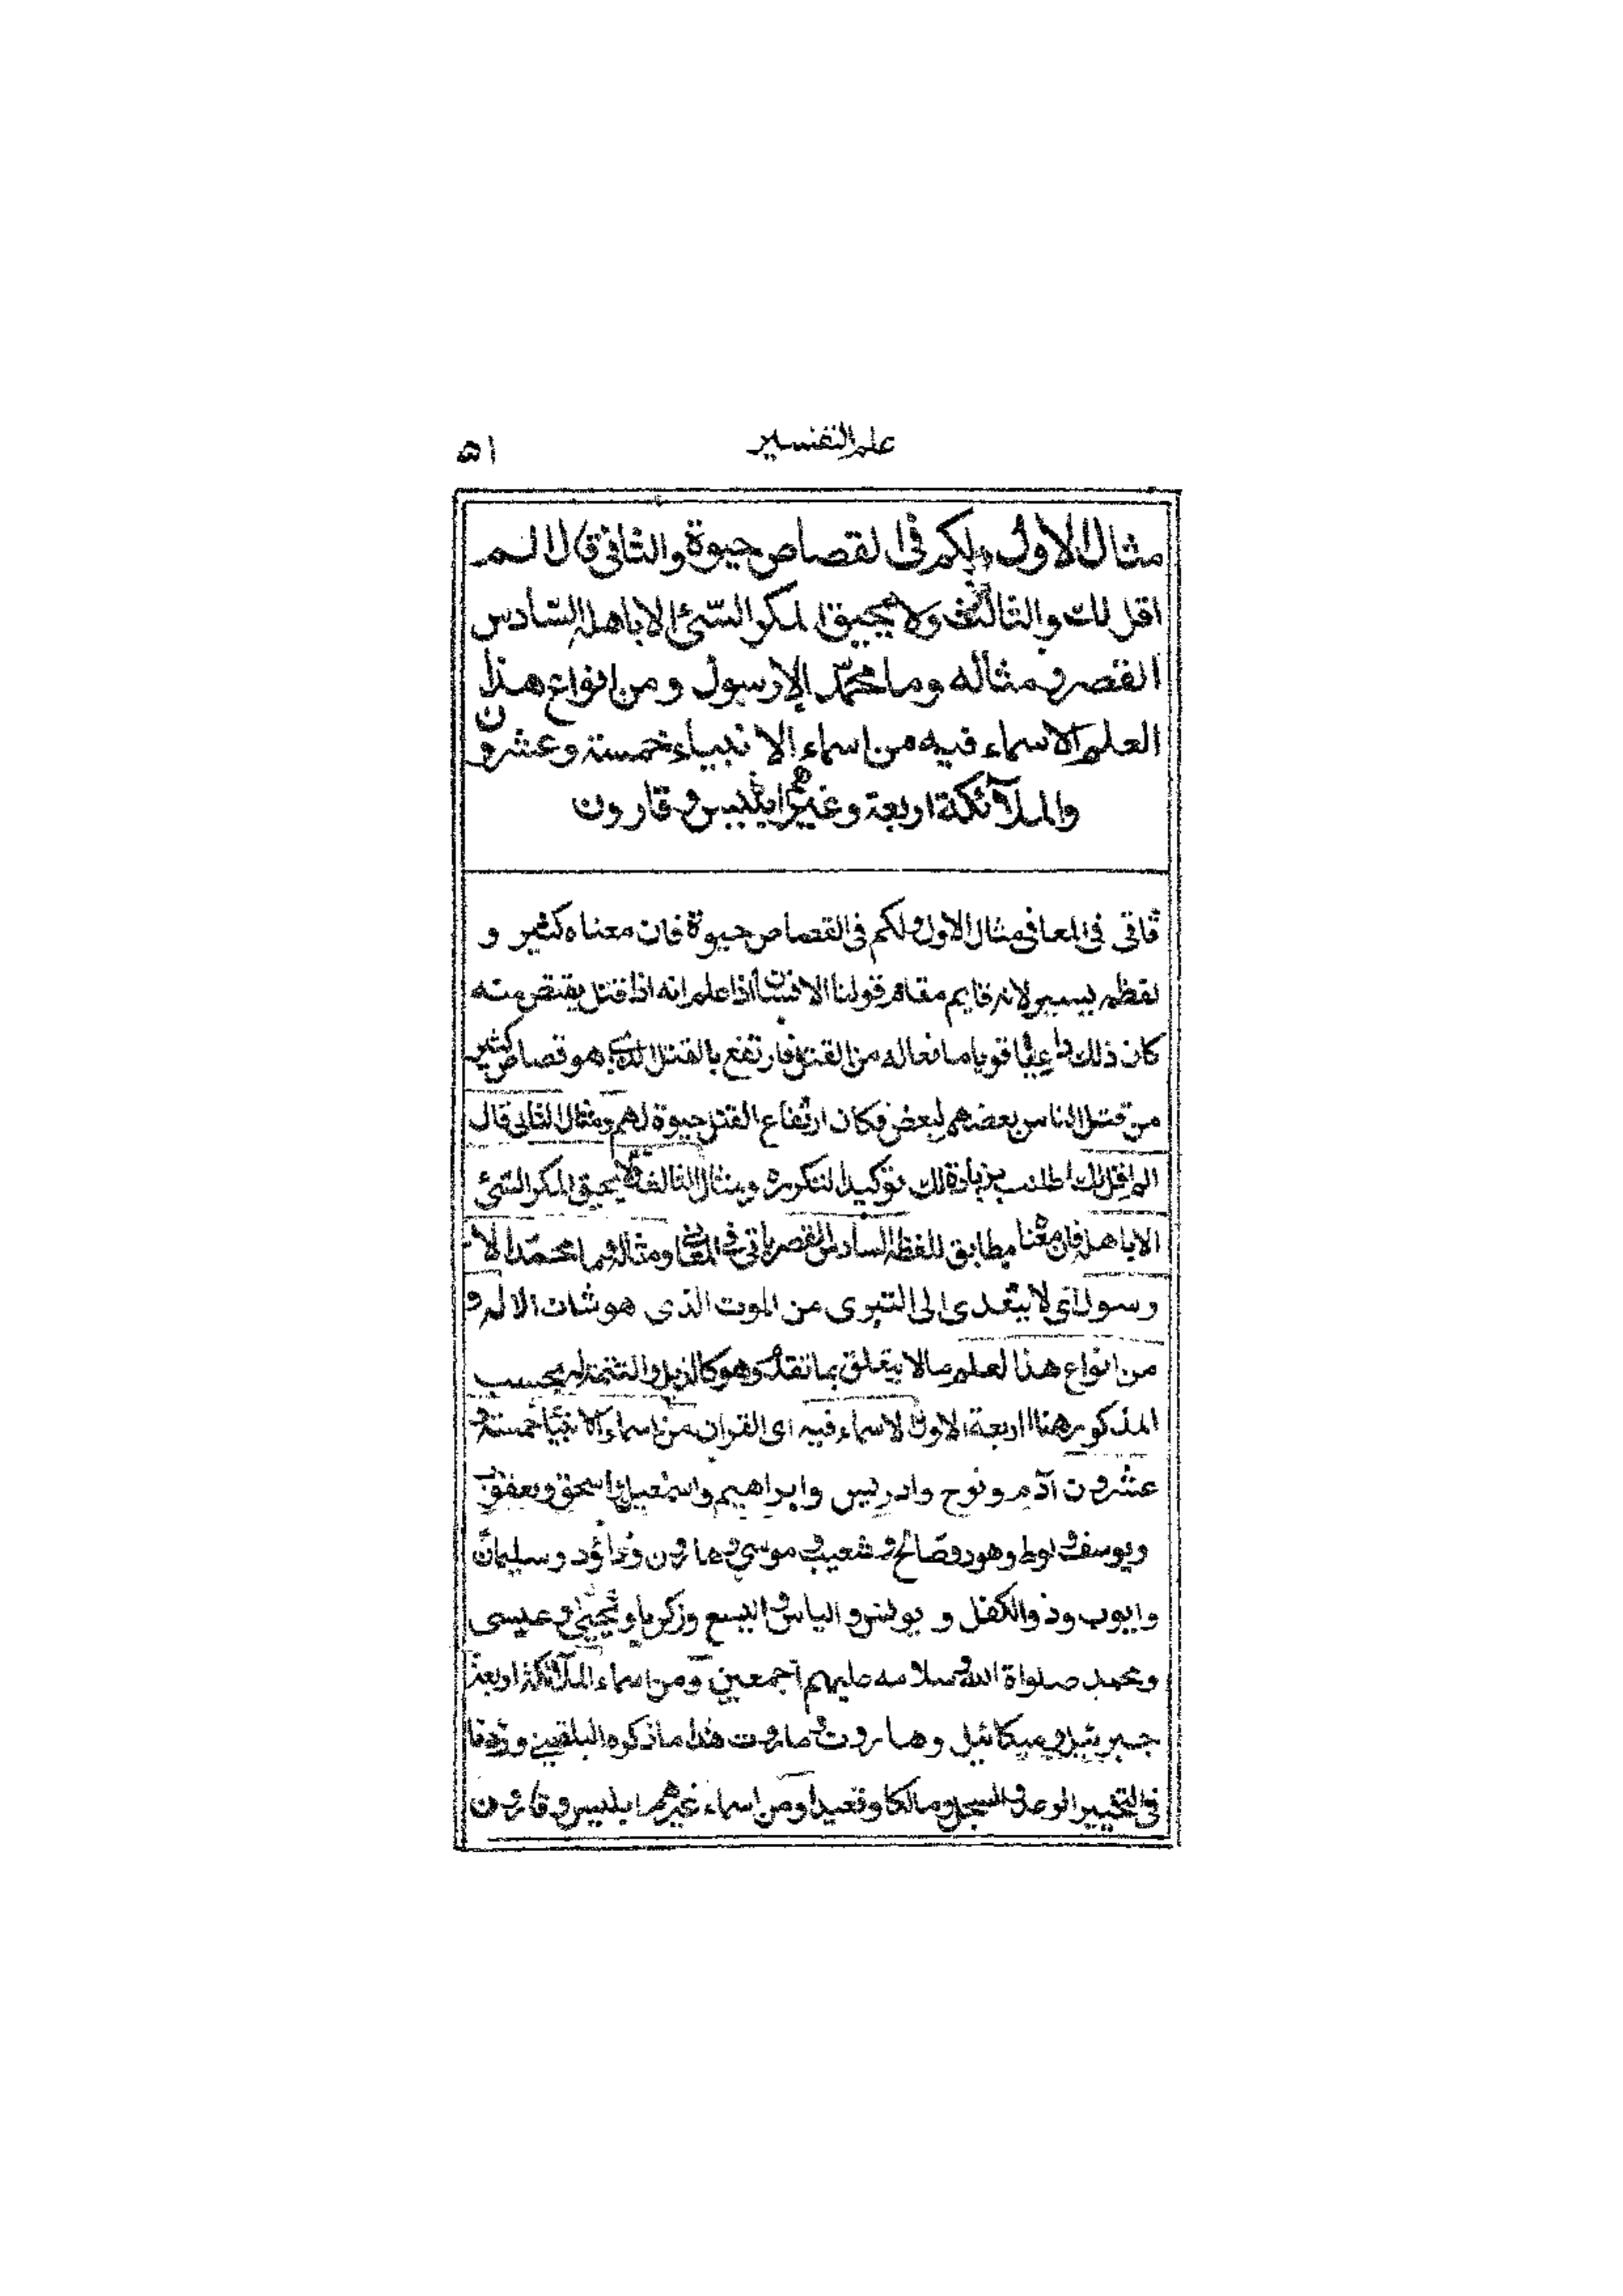 علم التفسير ٥١
مثال الاول ولكم فى القصاص حيوة والثانى قال الم
اقل لك والثالث ولا يحيق المكر السّئ الا باهله السّادس
القصر ومثاله وما محمّد الا رسول ومن انواع هذا
العلم الاسماء فيه من اسماء الانبياء خمسة وعشرون
والملآئكة اربعة وغيرهم ابليس وقارون
تاتى فى المعانى مثال الاول ولكم فى القصاص حيوة فان معناه كثير و
لفظه يسير لانه قايم مقام قولنا الانسان اذا علم انه اذا قتل يقتص منه
كان ذلك داعيا قويا مانعا له من القتل فارتفع بالقتل الذى هو قصاص كثير
من قتل الناس بعضهم لبعض فكان ارتفاع القتل حيوة لهم ومثال الثانى قال
الم اقل لك اطناب بزيادة لك توكيدا لتكرره ومثال الثالث ولا يحيق المكر السّئ
الا باهله فان معناه مطابق للفظه السادس القصر ياتى فى المعانى ومثاله وما محمّد الا
رسول اى لا يتعدى الى التبرى من الموت الذى هو شان الاله و
من انواع هذا العلم مالا يتعلق بما تقدم وهو كالذيل والتتمة له بحسب
المذكور هنا اربعة الاول الاسماء فيه اى القران من اسماء الانبياء خمسة و
عشرون آدم ونوح وادريس وابراهيم واسمعيل واسحق ويعقوب
ويوسف ولوط وهود وصالح وشعيب وموسى وهارون وداؤد وسليمان
وايوب وذو الكفل و يونس والياس واليسع وزكريا ويحيى وعيسى
ومحمد صلواة الله وسلامه عليهم اجمعين ومن اسماء الملآئكة اربعة
جبرئيل وميكائيل وهاروت وماروت هذا ما ذكره البلقينى وزدنا
فى التحبير الرعد والسجل ومالكا وقعيدا ومن اسماء غيرهم ابليس وقارون